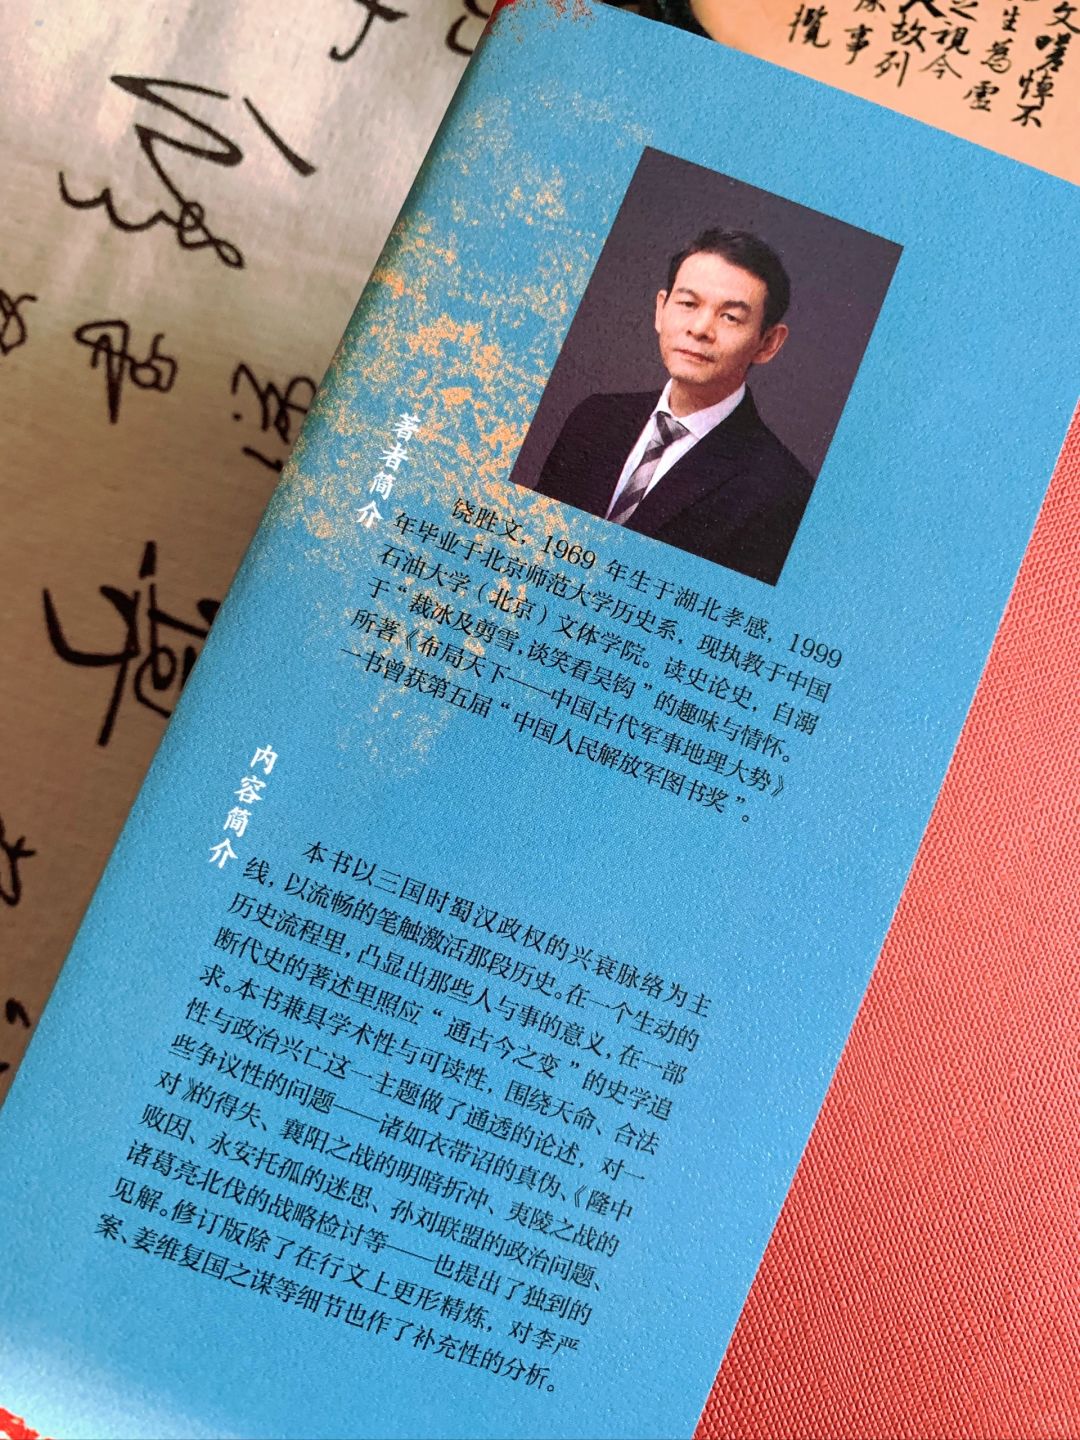 著者简介
饶胜文，1969 年生于湖北孝感，1999
年毕业于北京师范大学历史系，现执教于中国
石油大学（北京）文体学院。读史论史，自溺
于“裁冰及剪雪，谈笑看吴钩”的趣味与情怀。
所著《布局天下——中国古代军事地理大势》
一书曾获第五届“中国人民解放军图书奖”。
内容简介
本书以三国时蜀汉政权的兴衰脉络为主
线，以流畅的笔触激活那段历史。在一个生动的
历史流程里，凸显出那些人与事的意义，在一部
断代史的著述里照应“通古今之变”的史学追
求。本书兼具学术性与可读性，围绕天命、合法
性与政治兴亡这一主题做了通透的论述，对一
些争议性的问题——诸如衣带诏的真伪、《隆中
对》的得失、襄阳之战的明暗折冲、夷陵之战的
败因、永安托孤的迷思、孙刘联盟的政治问题、
诸葛亮北伐的战略检讨等——也提出了独到的
见解。修订版除了在行文上更形精炼，对李严
案、姜维复国之谋等细节也作了补充性的分析。